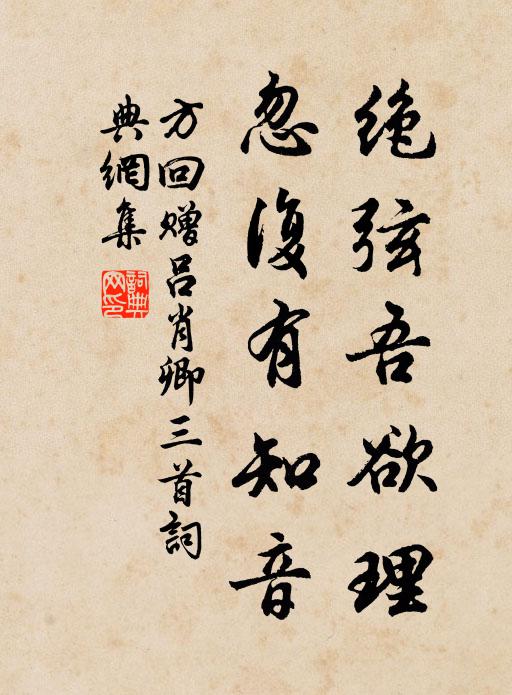 绝弦吾欲理
忽復有知音
方回赠吕肖卿三首詞
典網集
詞典网印